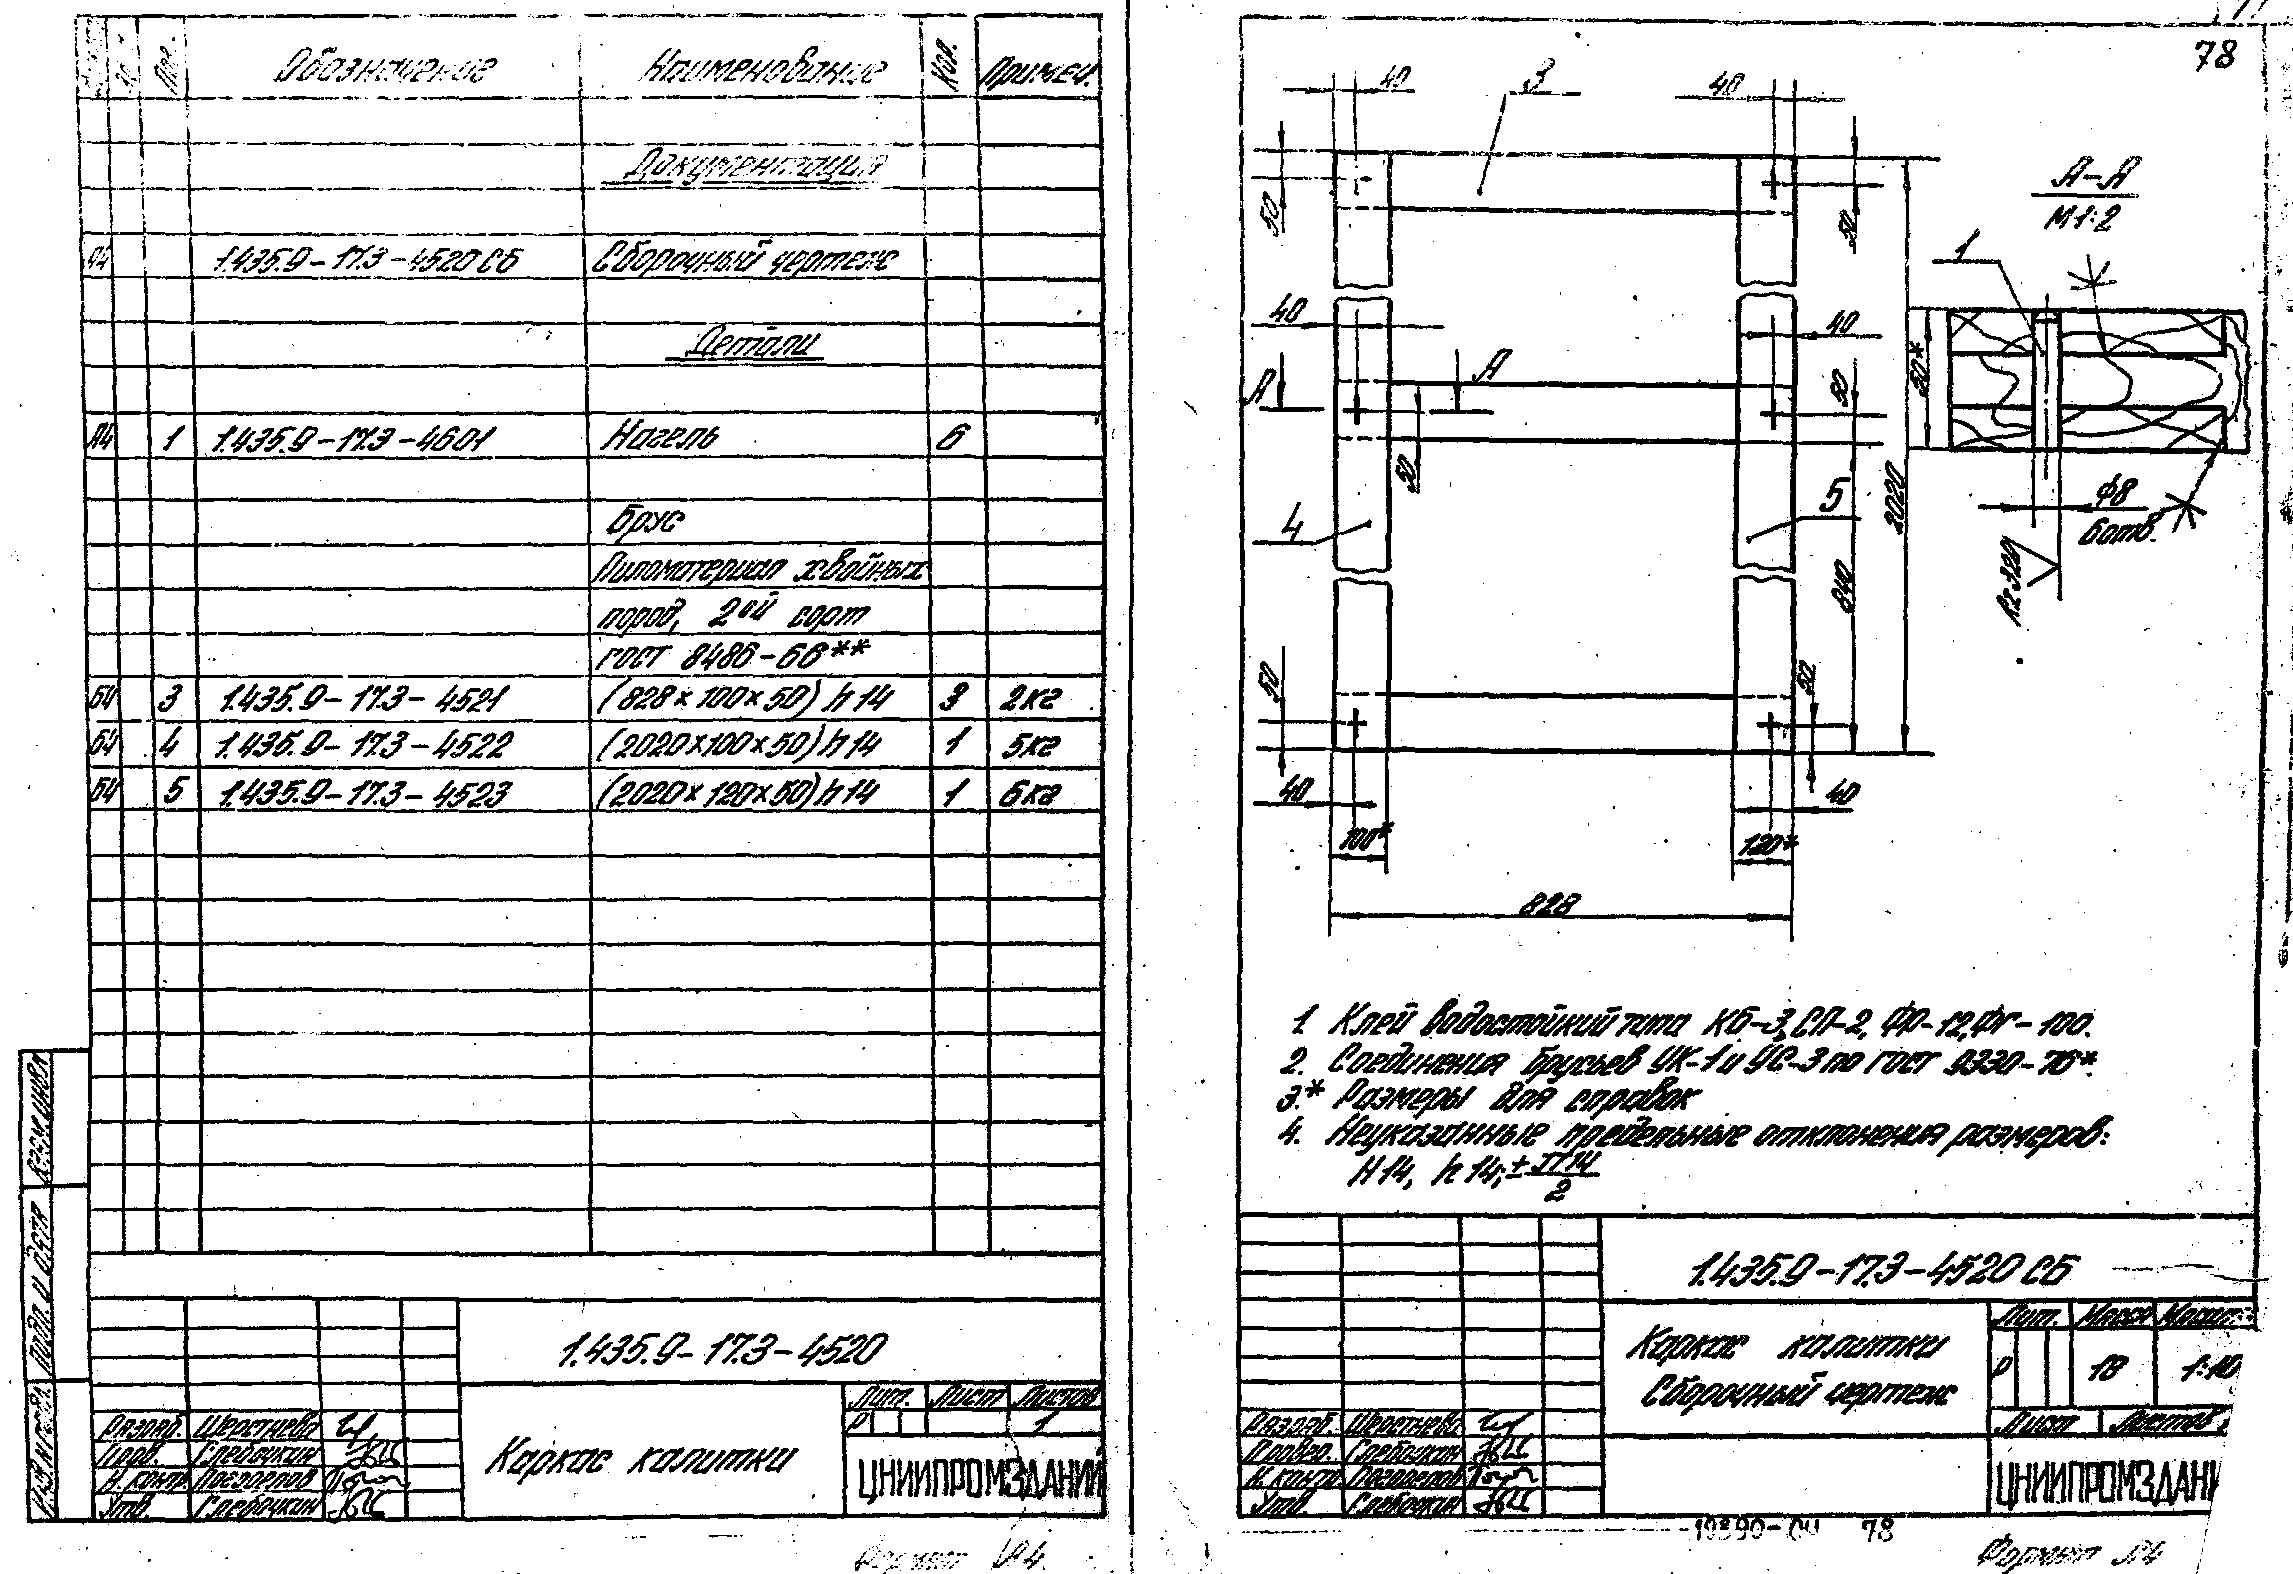 Поз. Обозначение Наименование Кол. Примеч.
Документация
А4 1.435.9-17.3-4520 СБ Сборочный чертеж
Детали
А4 1 1.435.9-17.3-4601 Нагель 6
Брус
Пиломатериал хвойных
пород, 2ой сорт
ГОСТ 8486-66**
БЧ 3 1.435.9-17.3-4521 (828×100×50) h14 3 2кг
БЧ 4 1.435.9-17.3-4522 (2020×100×50) h14 1 5кг
БЧ 5 1.435.9-17.3-4523 (2020×120×50) h14 1 6кг
Взам.инв.№
Подп. и дата
1.435.9-17.3-4520
Каркас калитки
Лит. Лист Листов
Р 1
ЦНИИПРОМЗДАНИЙ
Разраб. Шерстнева
Пров. Слебочкин
Н.контр.
Утв. Слебочкин
Формат А4
78
40 3 40
50 50
А-А
М1:2
1
40 40
А А
50 50
50*
4 5
2020
840
Ф8
6отв.
Rz 320
50 50
40 40
100* 120*
828
1. Клей водостойкий типа КБ-3, СП-2, ФР-12, ФГ-100.
2. Соединения брусьев УК-1 и УС-3 по ГОСТ 9330-76*.
3.* Размеры для справок
4. Неуказанные предельные отклонения размеров:
Н14, h14, ± IT14
2
1.435.9-17.3-4520 СБ
Каркас калитки
Сборочный чертеж
Лит. Масса Масшт.
Р 18 1:10
Лист Листов
ЦНИИПРОМЗДАНИ
Разраб. Шерстнева
Провер. Слебочкин
Н.контр.
Утв. Слебочкин
19390-04 78
Формат А4